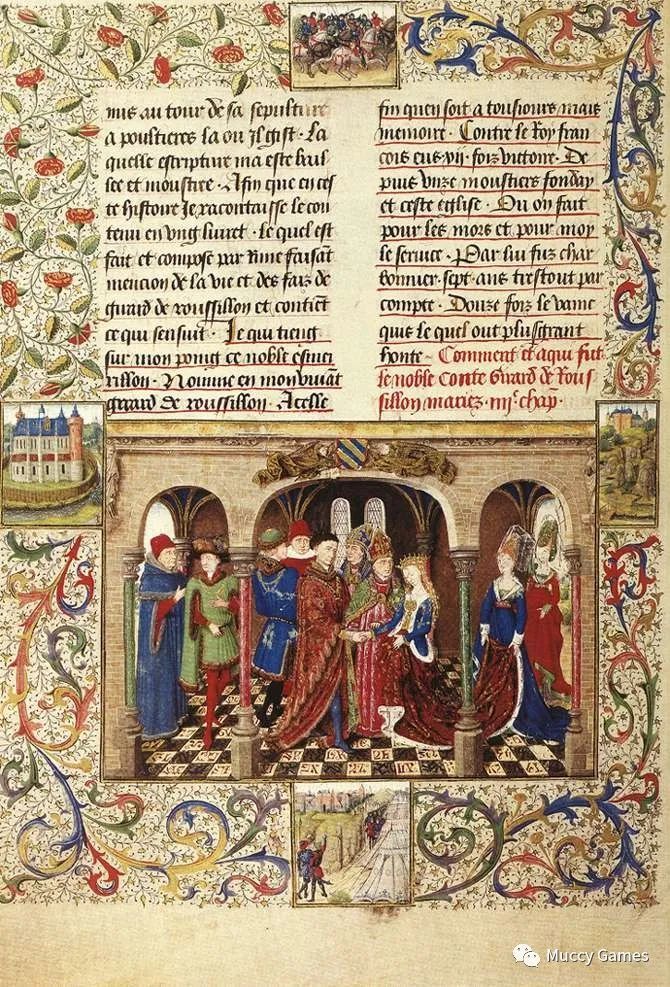 mis au tour de sa sepulture
a poultieres la ou Il gist · La
quelle escripture ma este bail
lee et moustree · Afin que en ces
te histoire Je racontaisse le con
tenu en ung liuret · le quel est
fait et compose par Rime faisant
mencion de la vie et des faiz de
girard de roussillon et contient
ce qui sensuit · Je qui tieng
sur mon poing ce noble esmer
rillon · Nomme en mon viuant
gerard de roussillon · Acesse
fin quen soit a tousiours mais
memoire · Contre le Roy fran
cois eus · vij · foiz victoire · De
puis unze moustiers fonday
et ceste eglise · Ou on fait
pour les mors et pour moy
le seruice · Par lui fuz char
bonnier · sept · ans trestout par
compte · Douze foiz le vain
quis le quel out plus grant
honte · Comment et a qui fut
le noble Conte Girard de Rous
sillon mariez · iiije chap̄
Muccy Games